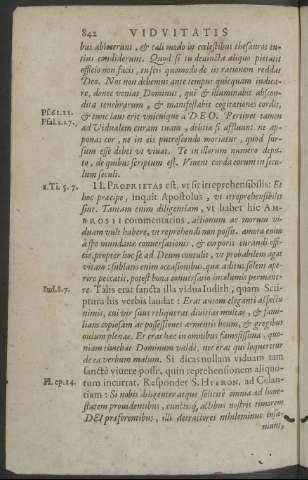 842 VIDVITATIS
bus abierunt, & tali modo in cœlestibus thesauros tu-
tius condiderunt. Quod si tu devincta aliquo pietatis
officio non facis, tu scis quomodo de iis rationem reddas
Deo. Nos non debemus ante tempus quicquam iudica-
re, donec veniat Dominus, qui & illuminabit abscon-
dita tenebrarum, & manifestabit cogitationes cordis,
Ps. 61. 11.
& tunc laus erit unicuique à DEO. Pertinet tamen
Psal. 21. 27.
ad Vidualem curam tuam, delitiæ si affluunt, ne ap-
ponas cor, ne in eis putrescendo moriatur, quod sur-
sum esse debet ut vivat. Te in illorum numero depu-
to, de quibus scriptum est. Vivent corda eorum in secu-
lum seculi.
1. Ti. 5. 7.
II. PROPRIETAS est, ut sit irreprehensibilis: Et
hoc præcipe, inquit Apostolus, ut irreprehensibiles
sint. Tantam enim diligentiam, ut habet hic AM-
BROSII commentarius, actionum ac morum vi-
duam vult habere, ut reprehendi non possit. amota enim
à spe mundanæ conversationis, & corporis curandi offi-
cii, propter hoc se ad Deum contulit, ut probabilem agat
vitam: sublatis enim occasionibus, quæ aditus solent ape-
rire peccatis, potest bona conversatio incolumis permane-
Iud. 8. 7.
re. Talis erat sancta illa vidua Iudith, quam Scri-
ptura his verbis laudat: Erat autem eleganti aspectu
nimis, cui vir suus reliquerat divitias multas, & fami-
liam copiosam ac possessiones armentis boum, & gregibus
ovium plenas. Et erat hæc in omnibus famosissima, quo-
niam timebat Dominum valdè, nec erat qui loqueretur
de ea verbum malum. Si dicas nullam viduam tam
sanctè vivere posse, quin reprehensionem aliquo-
H. ep. 14.
rum incurrat. Respondet S. HIERON. ad Celan-
tiam: Si nobis diligenter atque solicitè omnia ad hone-
statem providentibus, cunctisq; actibus nostris timorem
DEI præferentibus, illi detractores nihilominus insa-
niant,